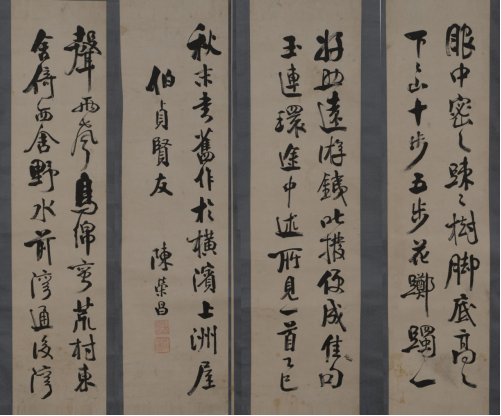 眼中密々疎々樹脚底高々
下々山十步五步花躑躅一
好助遠游錢叱撥便成佳句
玉連環途中述所見一首乙巳
秋末書舊作於橫濱上洲屋
伯貞賢友
陳榮昌
聲兩聲鳥綿蠻荒村東
舍倚西舍野水前灣通後灣